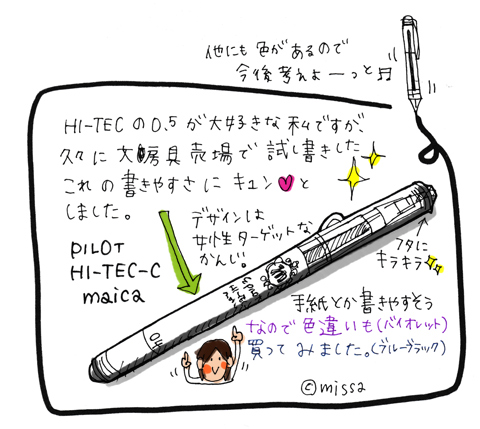 他にも色があるので
今後考えよーっと♬
HI-TECの0.5が大好きな私ですが、
久々に文房具売場で試し書きした
これの書きやすさにキュン♥と
しました。
デザインは
女性ターゲットな
かんじ。
PILOT
HI-TEC-C
maica
フタに
キラキラ
手紙とか書きやすそう
なので色違いも(バイオレット)
買ってみました。(ブルーブラック)
©missa